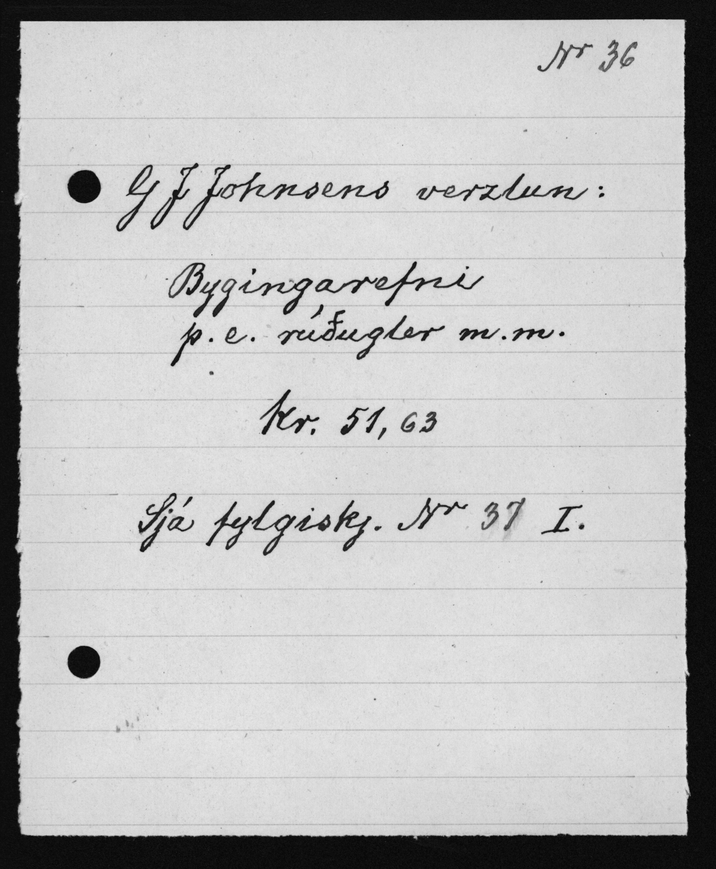 Nr 36
G J Johnsens verzlun:
Bygingarefni
p. e. rúðugler m.m.
Kr. 51,63
Sjá fylgiskj. Nr 37 I.